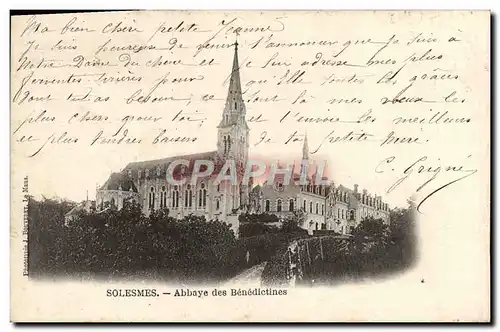 Ma bien chère petite Jeanne
Je suis heureuse de venir t'annoncer que je suis à
Notre Dame du chêne et je lui adresse mes plus
ferventes prières pour qu'Elle toutes les grâces
dont tu as besoin, ce sont là mes vœux les
plus chers pour toi, je t'envoie mes meilleurs
et plus tendres baisers ta petite Mère.
C. Grigné
CPRPHIL
Phototypie J. Bouveret, Le Mans
SOLESMES. — Abbaye des Bénédictines